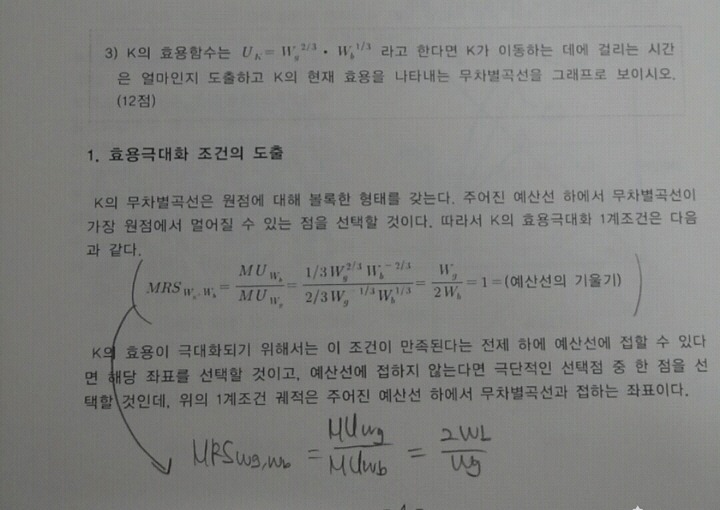 3) K의 효용함수는 U_K = W_g^{2/3} · W_b^{1/3} 라고 한다면 K가 이동하는 데에 걸리는 시간
은 얼마인지 도출하고 K의 현재 효용을 나타내는 무차별곡선을 그래프로 보이시오.
(12점)
1. 효용극대화 조건의 도출
K의 무차별곡선은 원점에 대해 볼록한 형태를 갖는다. 주어진 예산선 하에서 무차별곡선이
가장 원점에서 멀어질 수 있는 점을 선택할 것이다. 따라서 K의 효용극대화 1계조건은 다음
과 같다.
MRS_{W_g, W_b} = MU_{W_b} / MU_{W_g} = 1/3 W_g^{2/3} W_b^{-2/3} / 2/3 W_g^{-1/3} W_b^{1/3} = W_g / 2W_b = 1 = (예산선의 기울기)
K의 효용이 극대화되기 위해서는 이 조건이 만족된다는 전제 하에 예산선에 접할 수 있다
면 해당 좌표를 선택할 것이고, 예산선에 접하지 않는다면 극단적인 선택점 중 한 점을 선
택할 것인데, 위의 1계조건 궤적은 주어진 예산선 하에서 무차별곡선과 접하는 좌표이다.
MRS_{Wg,Wb} = MU_{Wg} / MU_{Wb} = 2Wb / Wg